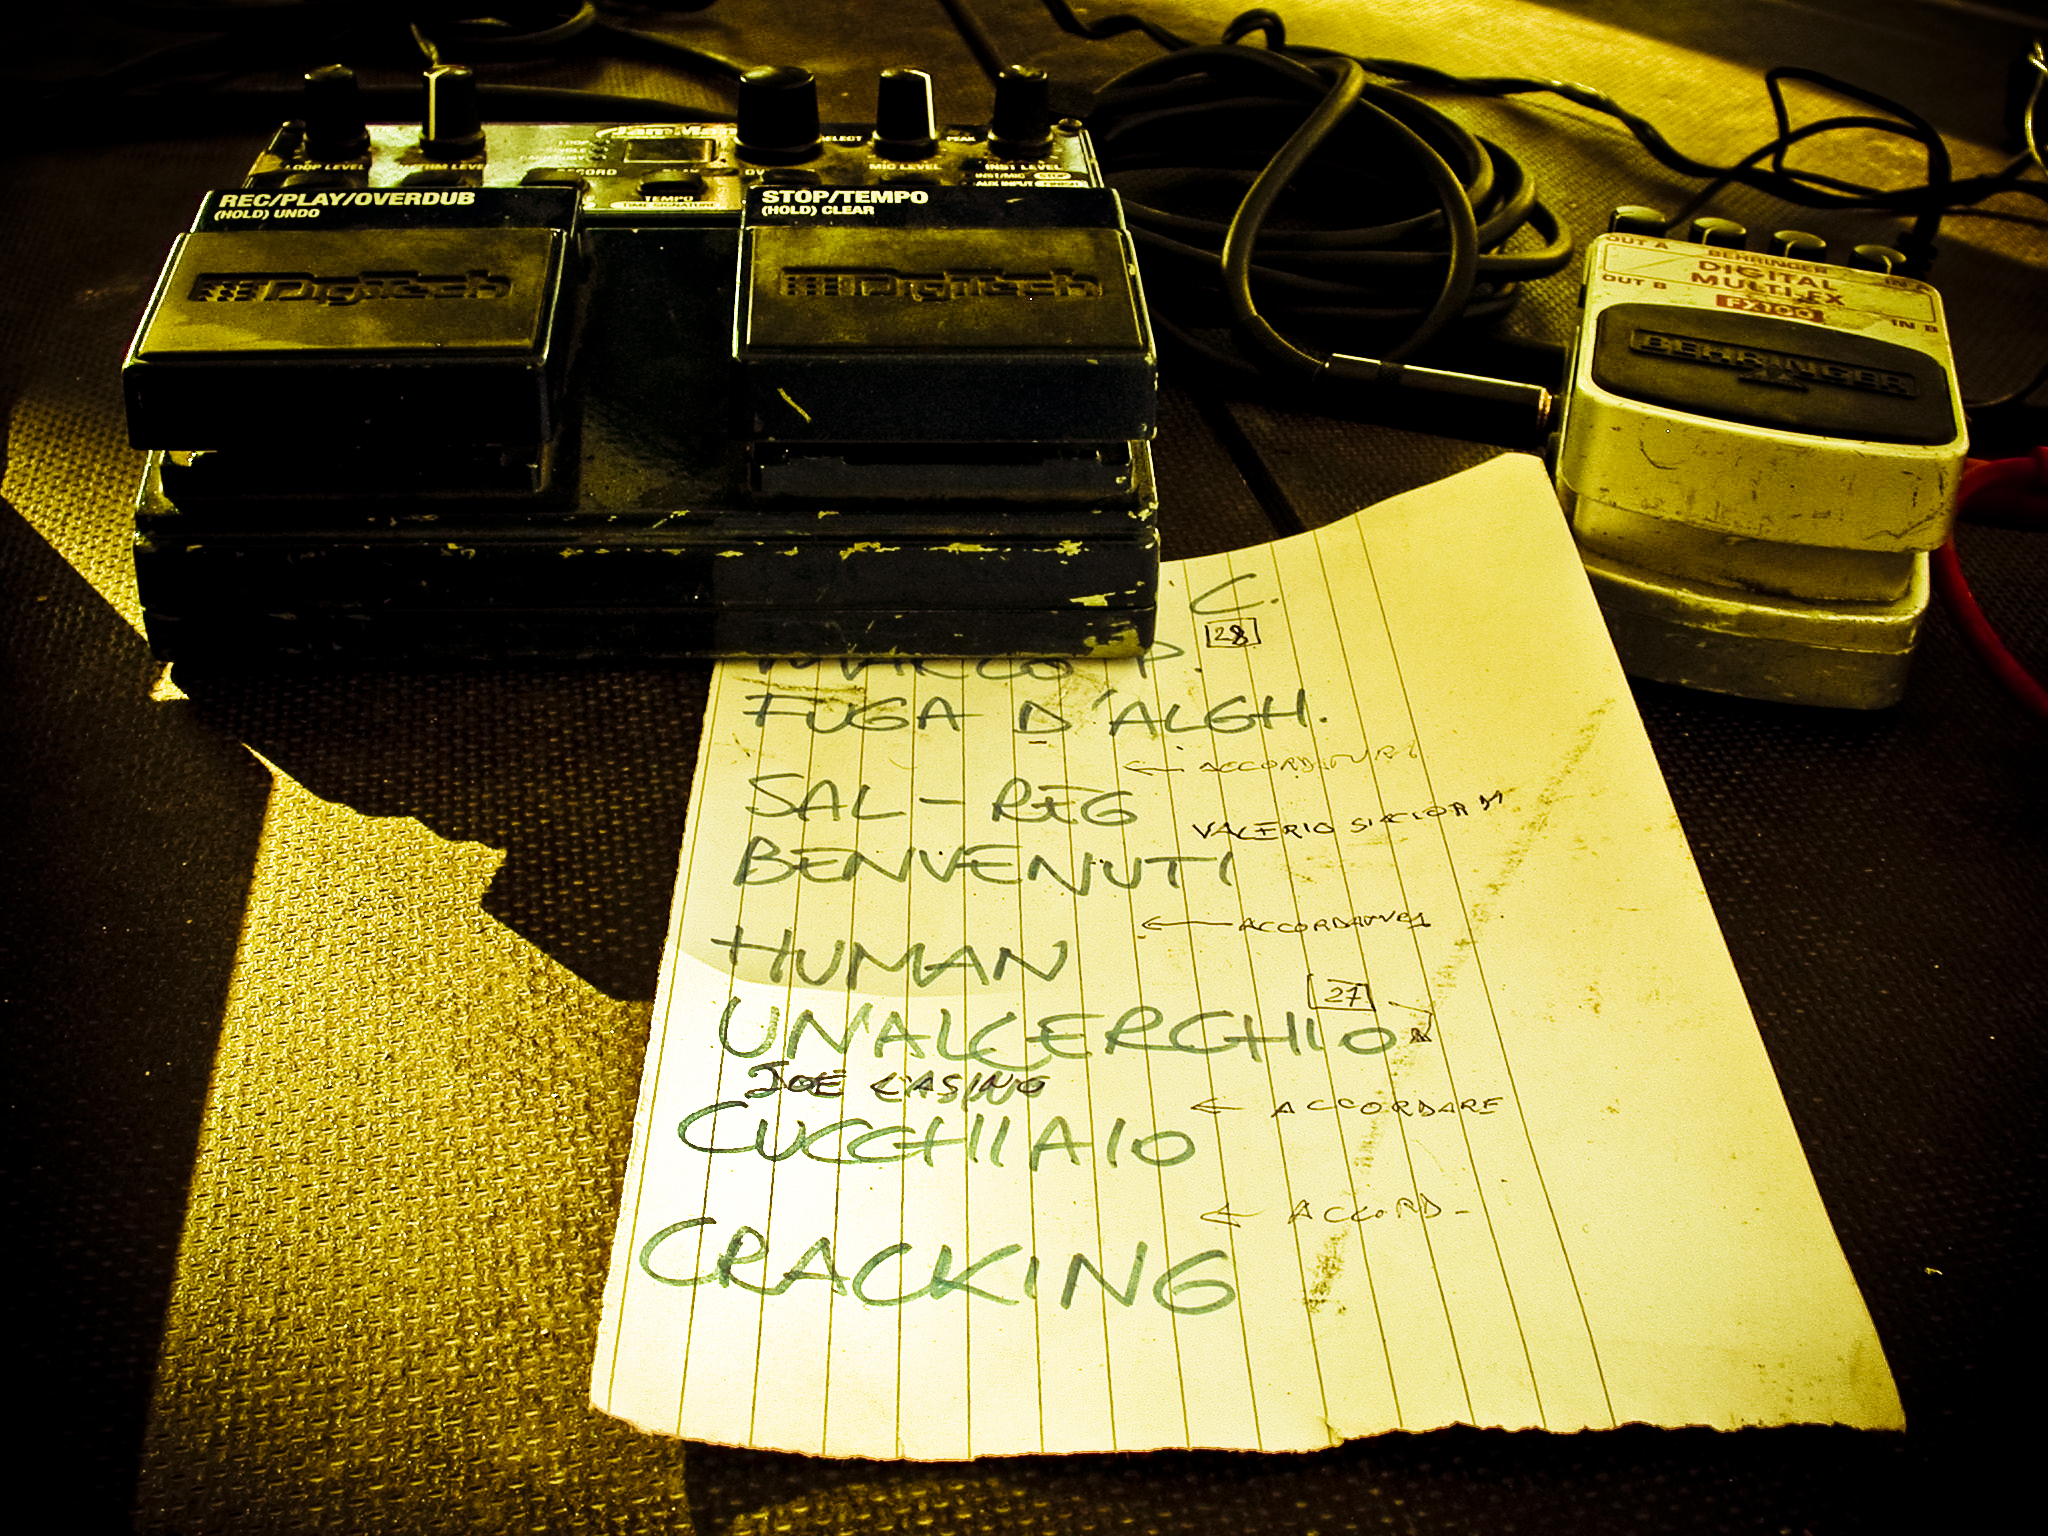 JamMan
LOOP LEVEL RHYTHM LEVEL SELECT MIC LEVEL PEAK INST LEVEL
LOOP
SINGLE
RECORD
INST/MIC STOP
AUX INPUT FINISH
REC/PLAY/OVERDUB
(HOLD) UNDO
TEMPO
TIME SIGNATURE
STOP/TEMPO
(HOLD) CLEAR
DigiTech
DigiTech
OUT A BEHRINGER IN A
DIGITAL
OUT B MULTI-FX
FX100 IN B
BEHRINGER
C.
28
MARCO P.
FUGA D'ALGH.
← 
SAL - REG
VALERIO
BENVENUTI
←
HUMAN
27
UNALCERCHIO
JOE CASINO
← ACCORDARE
CUCCHIAIO
← ACCORD -
CRACKING